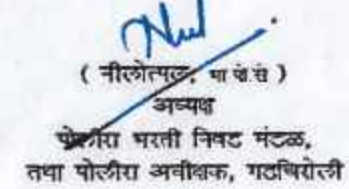 ( नीलोत्पल, भा पो से )
अध्यक्ष
पोलीस भरती निवड मंडळ,
तथा पोलीस अधीक्षक, गडचिरोली